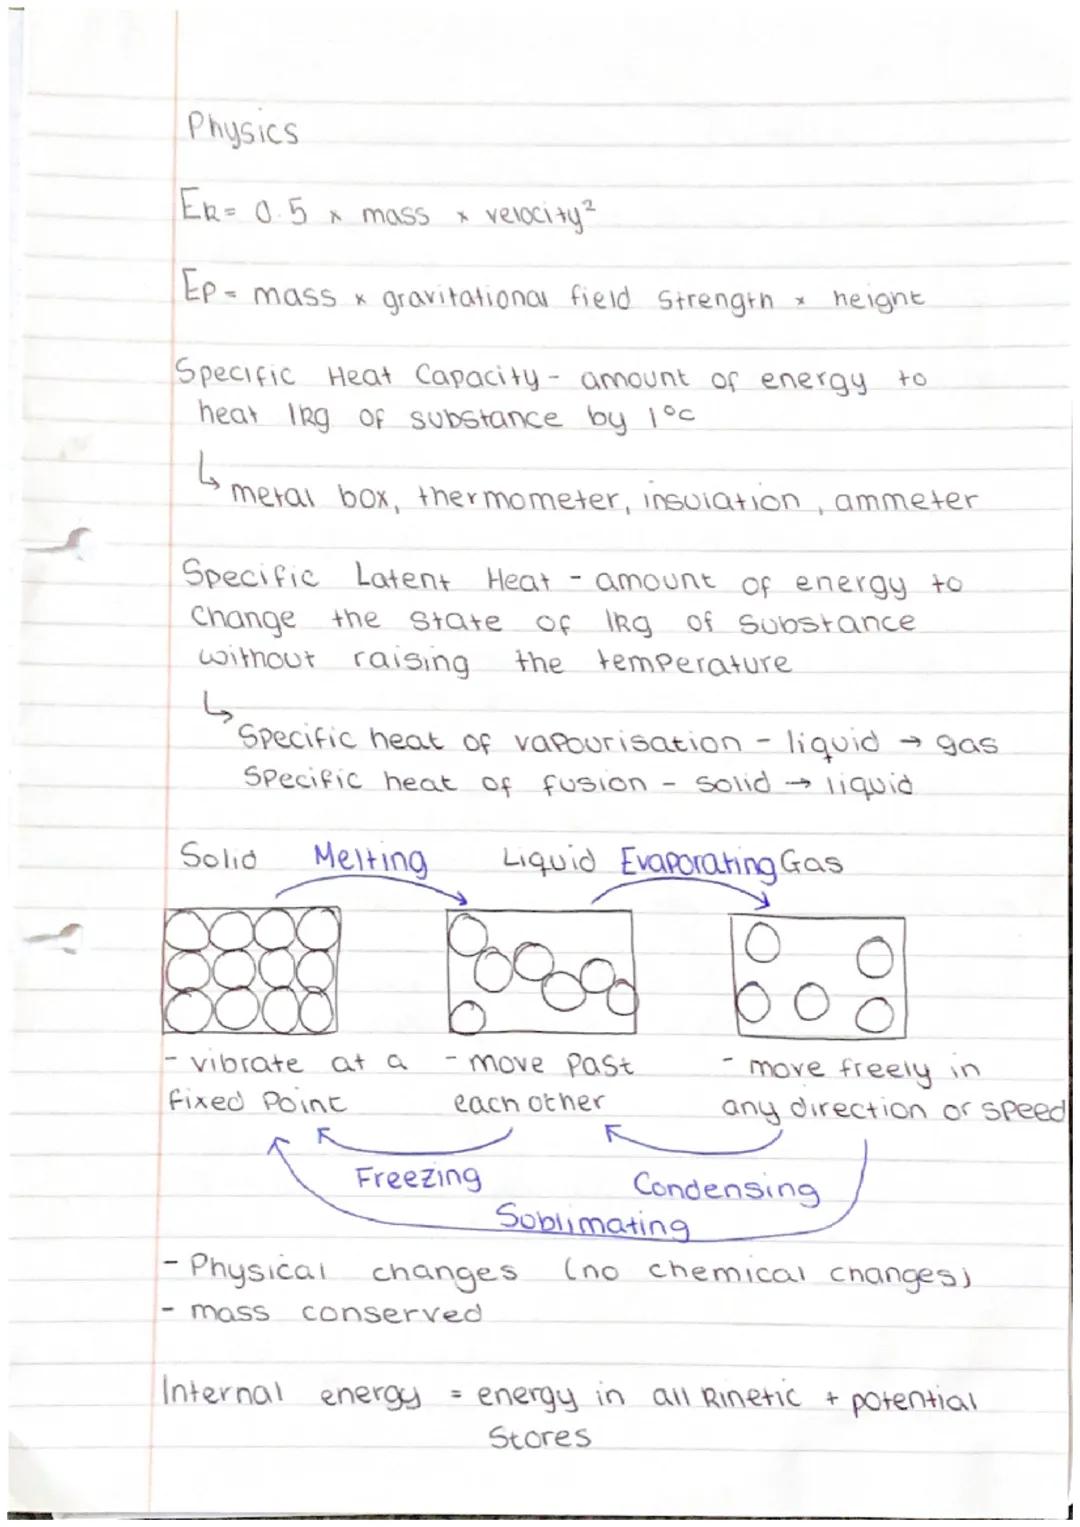 Physics
Ek= 0.5 x mass x velocity²
Ep= mass x gravitational field strength x height
Specific Heat Capacity - amount of energy to
heat 1kg of substance by 1°c
↳ metal box, thermometer, insulation, ammeter
Specific Latent Heat - amount of energy to
change the state of 1kg of substance
without raising the temperature
↳ Specific heat of vapourisation - liquid → gas
Specific heat of fusion - solid → liquid
Solid Melting Liquid Evaporating Gas
- vibrate at a
fixed point
- move past
each other
- move freely in
any direction or speed
Freezing
Condensing
Soblimating
- Physical changes (no chemical changes)
- mass conserved
Internal energy = energy in all kinetic + potential
stores